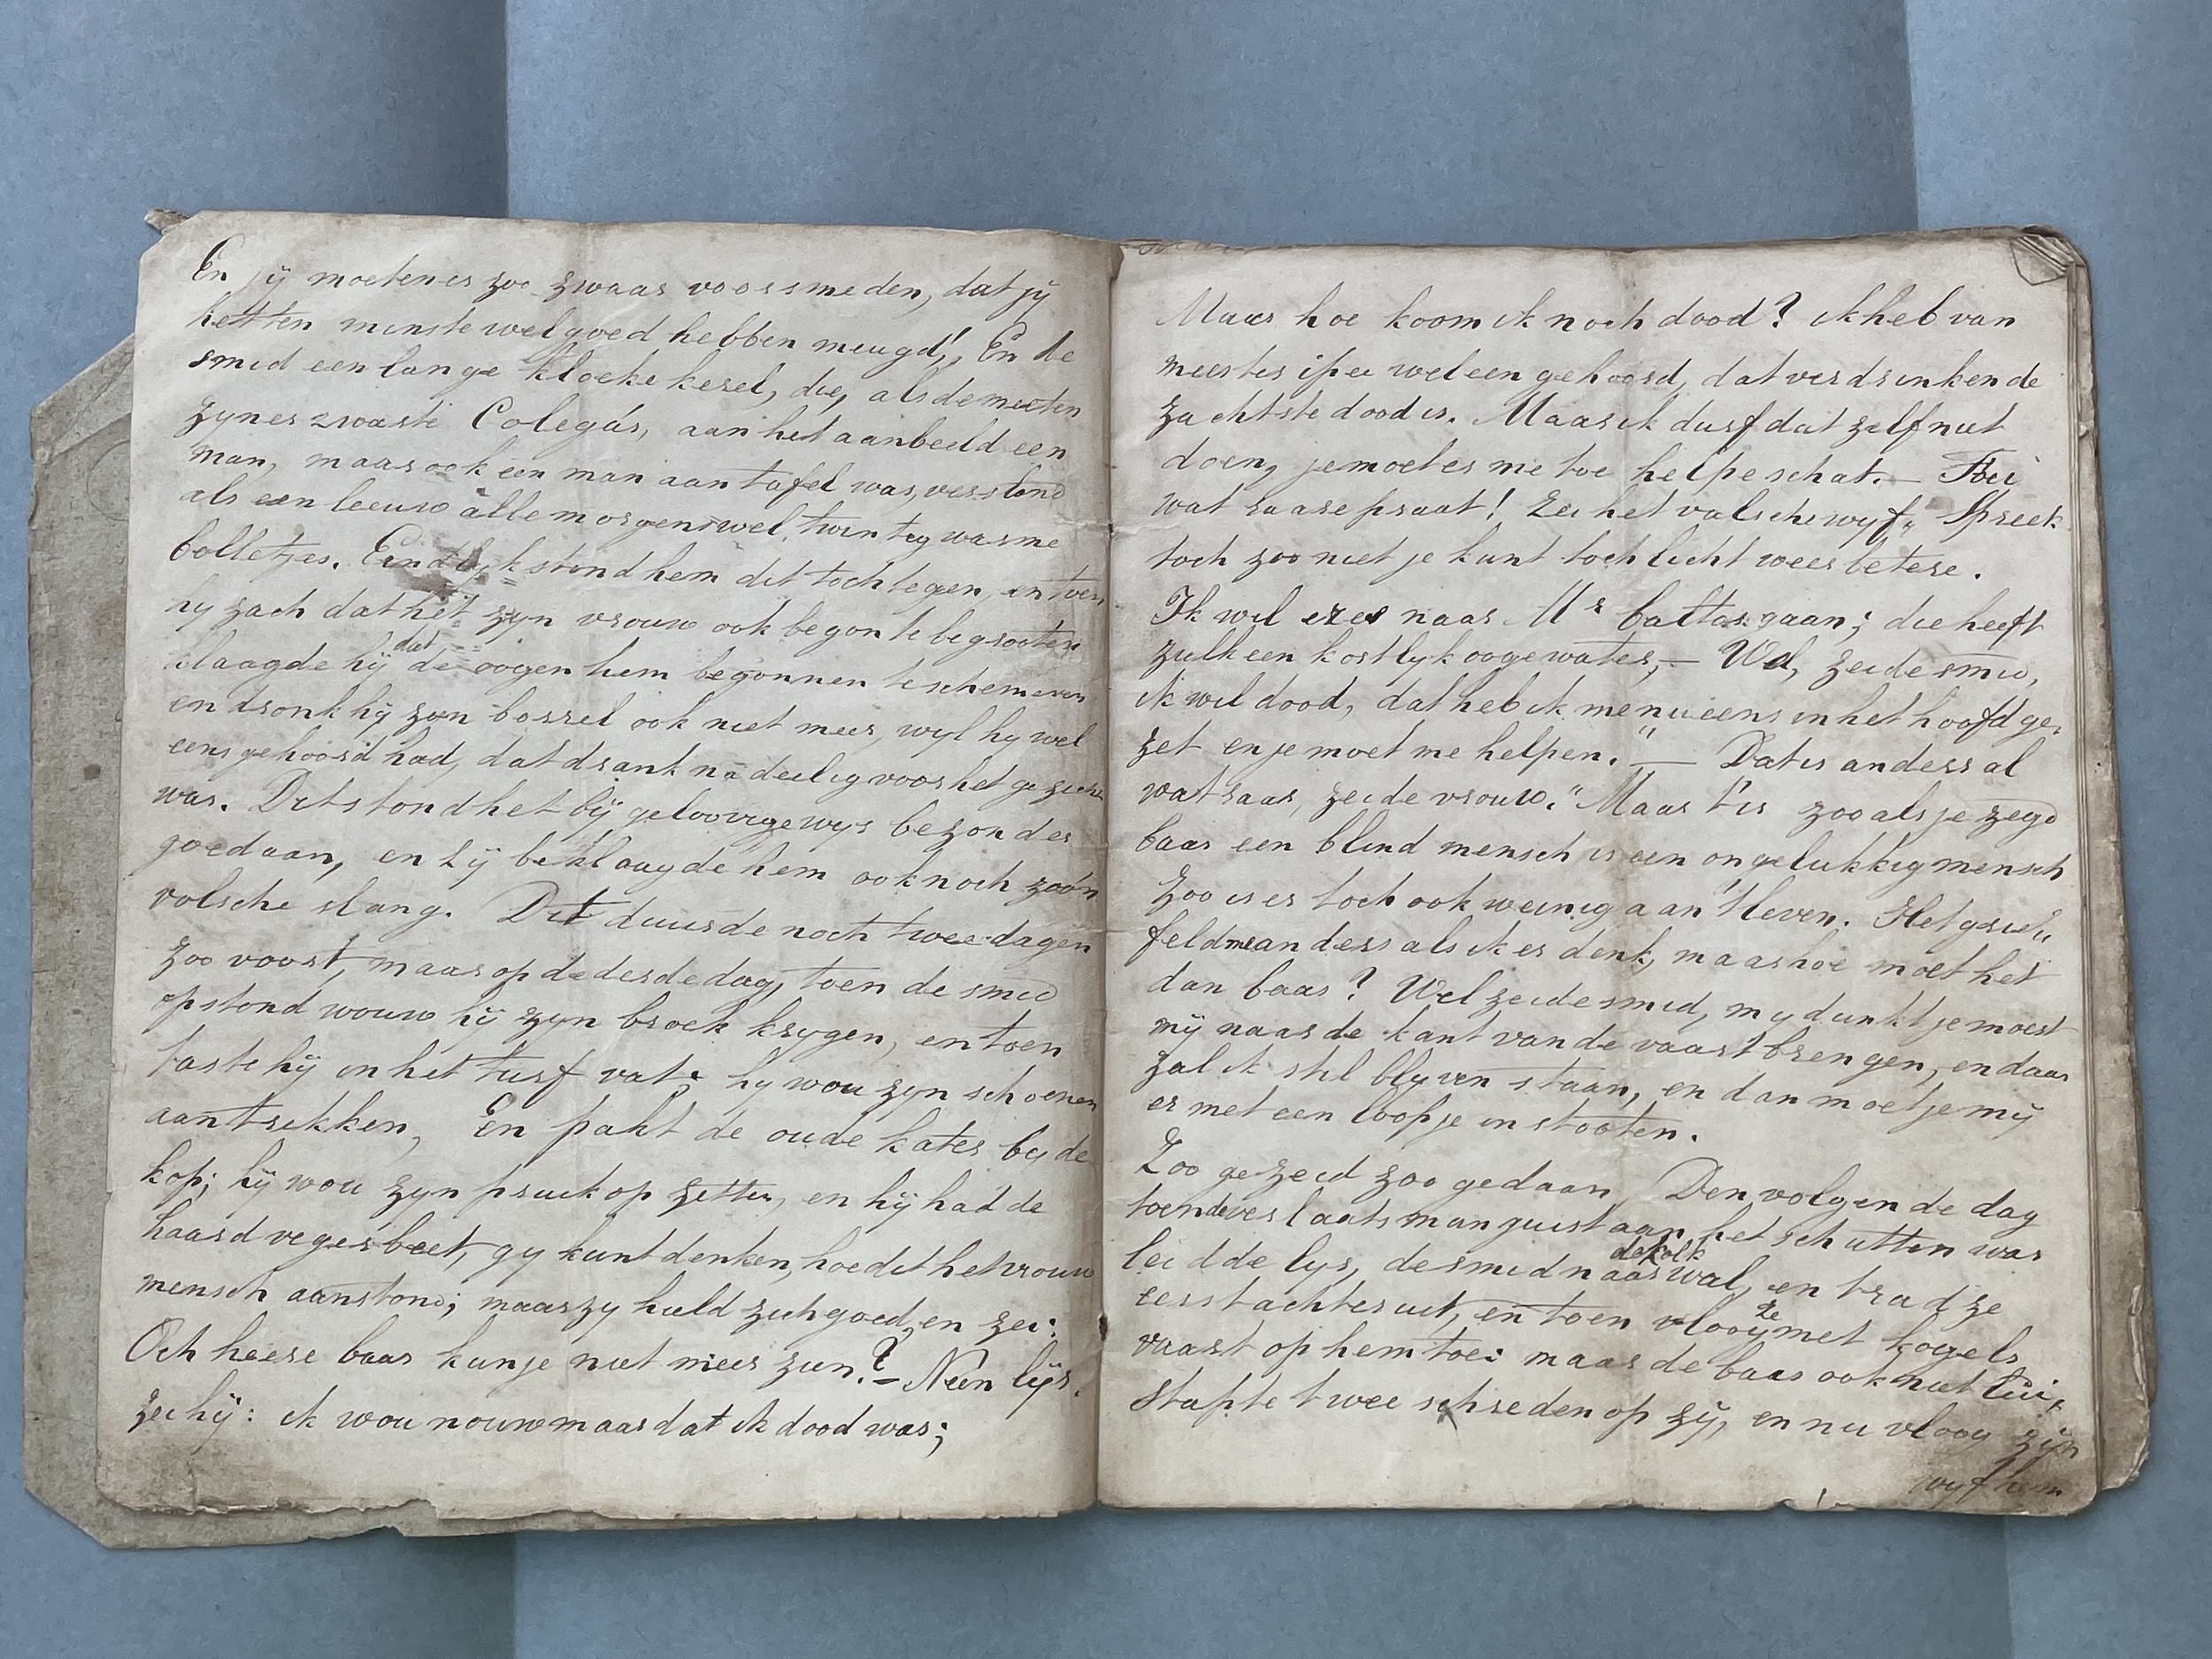 En jÿ moeten er zoo zwaar voor smeden, dat jÿ
het ten minste wel goed hebben meugd!, En de
smid een lange kloeke kerel, die, als de meeten
zyner zwarte Colegás, aan het aanbeeld een
man, maar ook een man aan tafel was, verslond
als een leeuw alle morgens wel, twinteg warme
bolletjes. Eindlyk stond hem dit toch tegen, en toen
hy zach dat het zyn vrouw ook begon te begrooten
klaagde hÿ dat de oogen hem begonnen te schemeren
en dronk hÿ zyn borrel ook niet meer, wyl hy wel
eens gehoord had, dat drank nadeelig voor het gezicht
was. Dit stond het bÿ geloovige wys bezonder
goed aan, en zÿ beklaagde hem ook noch zoo'n
valsche slang. Dit duurde noch twee dagen
zoo voort, maar op de derde dag, toen de smid
opstond wouw hÿ zyn broek krygen, en toen
taste hÿ in het turf vat; hy wou zyn schoenen
aantrekken, En pakt de oude kater by de
kop; hÿ wou zyn pruik op zetten, en hÿ had de
haard veger beet, gy kunt denken, hoe dit het vrouw
mensch aanstond; maar zy hield zich goed, en zei:
Och heere baas kun je niet meer zien? - Neen lÿs.
zei hÿ: ik wou nouw maar dat ik dood was;
Maar hoe koom ik noch dood? ik heb van
meester ipee wel een gehoord, dat verdrinken de
zachtste dood is. Maar ik durf dat zelf niet
doen, je moet er me toe helpe schat. — Foei
wat raare praat! Zei het valsche wyf, Spreek
toch zoo niet je kunt toch licht weer betere.
Ik wil er es naar Mr baltas gaan; die heeft
zulk een kostlyk ooge water, — Wel, zei de smid,
ik wil dood, dat heb ik me nu eens in het hoofd ge-
zet en je moet me helpen." — Dat is anders al
wat raar, zei de vrouw. "Maar t'is zoo als je zegd
baas een blind mensch is een ongelukkig mensch
Zoo is er toch ook weinig aan 't leven. Het grieu
feld me anders als ik er denk, maar hoe moet het
dan baas? Wel zei de smid, my dunkt je moest
mÿ naar de kant van de vaart brengen, en daar
zal ik stil blyven staan, en dan moet je mÿ
er met een loopje in stooten.
Zoo gezeid zoo gedaan, Den volgende dag
toen de verlaatsman juist aan het schutten was
leidde lys, de smid naar de kolk wal, en trad ze
eerst achter uit, en toen vloog ze met kogels
vaart op hem toe: maar de baas ook niet lui,
stapte twee schreden op zÿ, en nu vloog zÿn
wyf hem